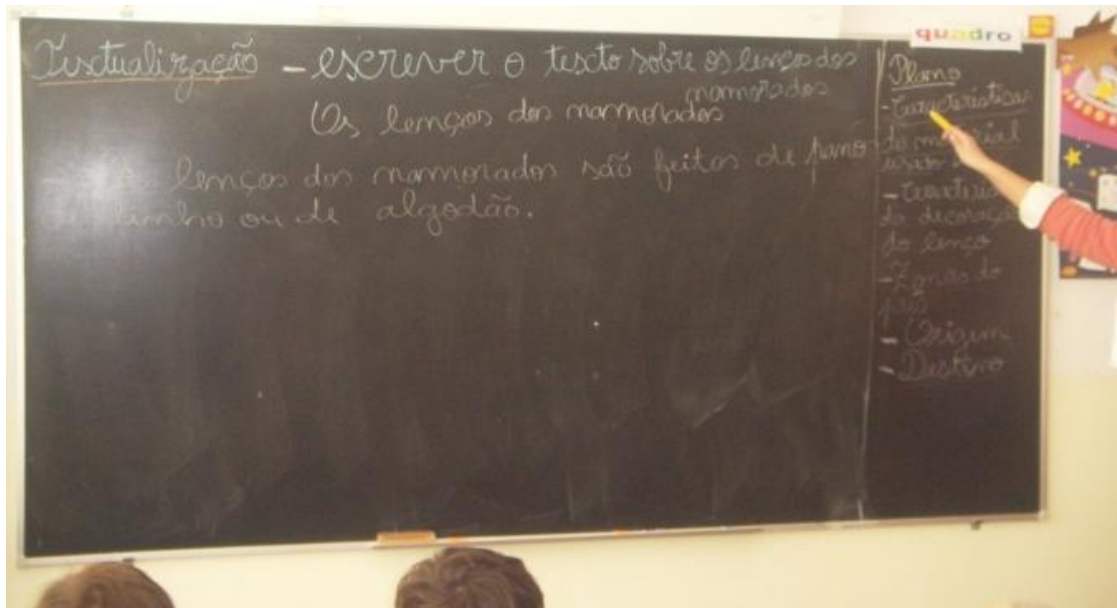 quadro
Textualização - escrever o texto sobre os lenços dos
namorados
Os lenços dos namorados
lenços dos namorados são feitos de pano
linho ou de algodão.
Plano
- Características
do material
usado
- Característic
da decoração
do lenço
- Zonas do
país
- Origem
- Destino